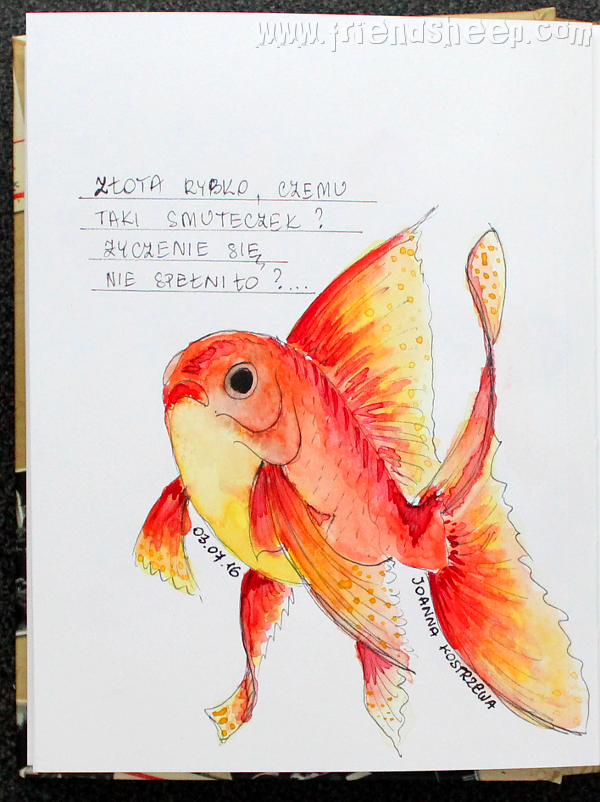 www.friendsheep.com
ZŁOTA RYBKO, CZEMU
TAKI SMUTECZEK?
ZYCZENIE SIĘ
NIE SPEŁNIŁO?...
03.07.16
JOANNA KOSTRZEWA